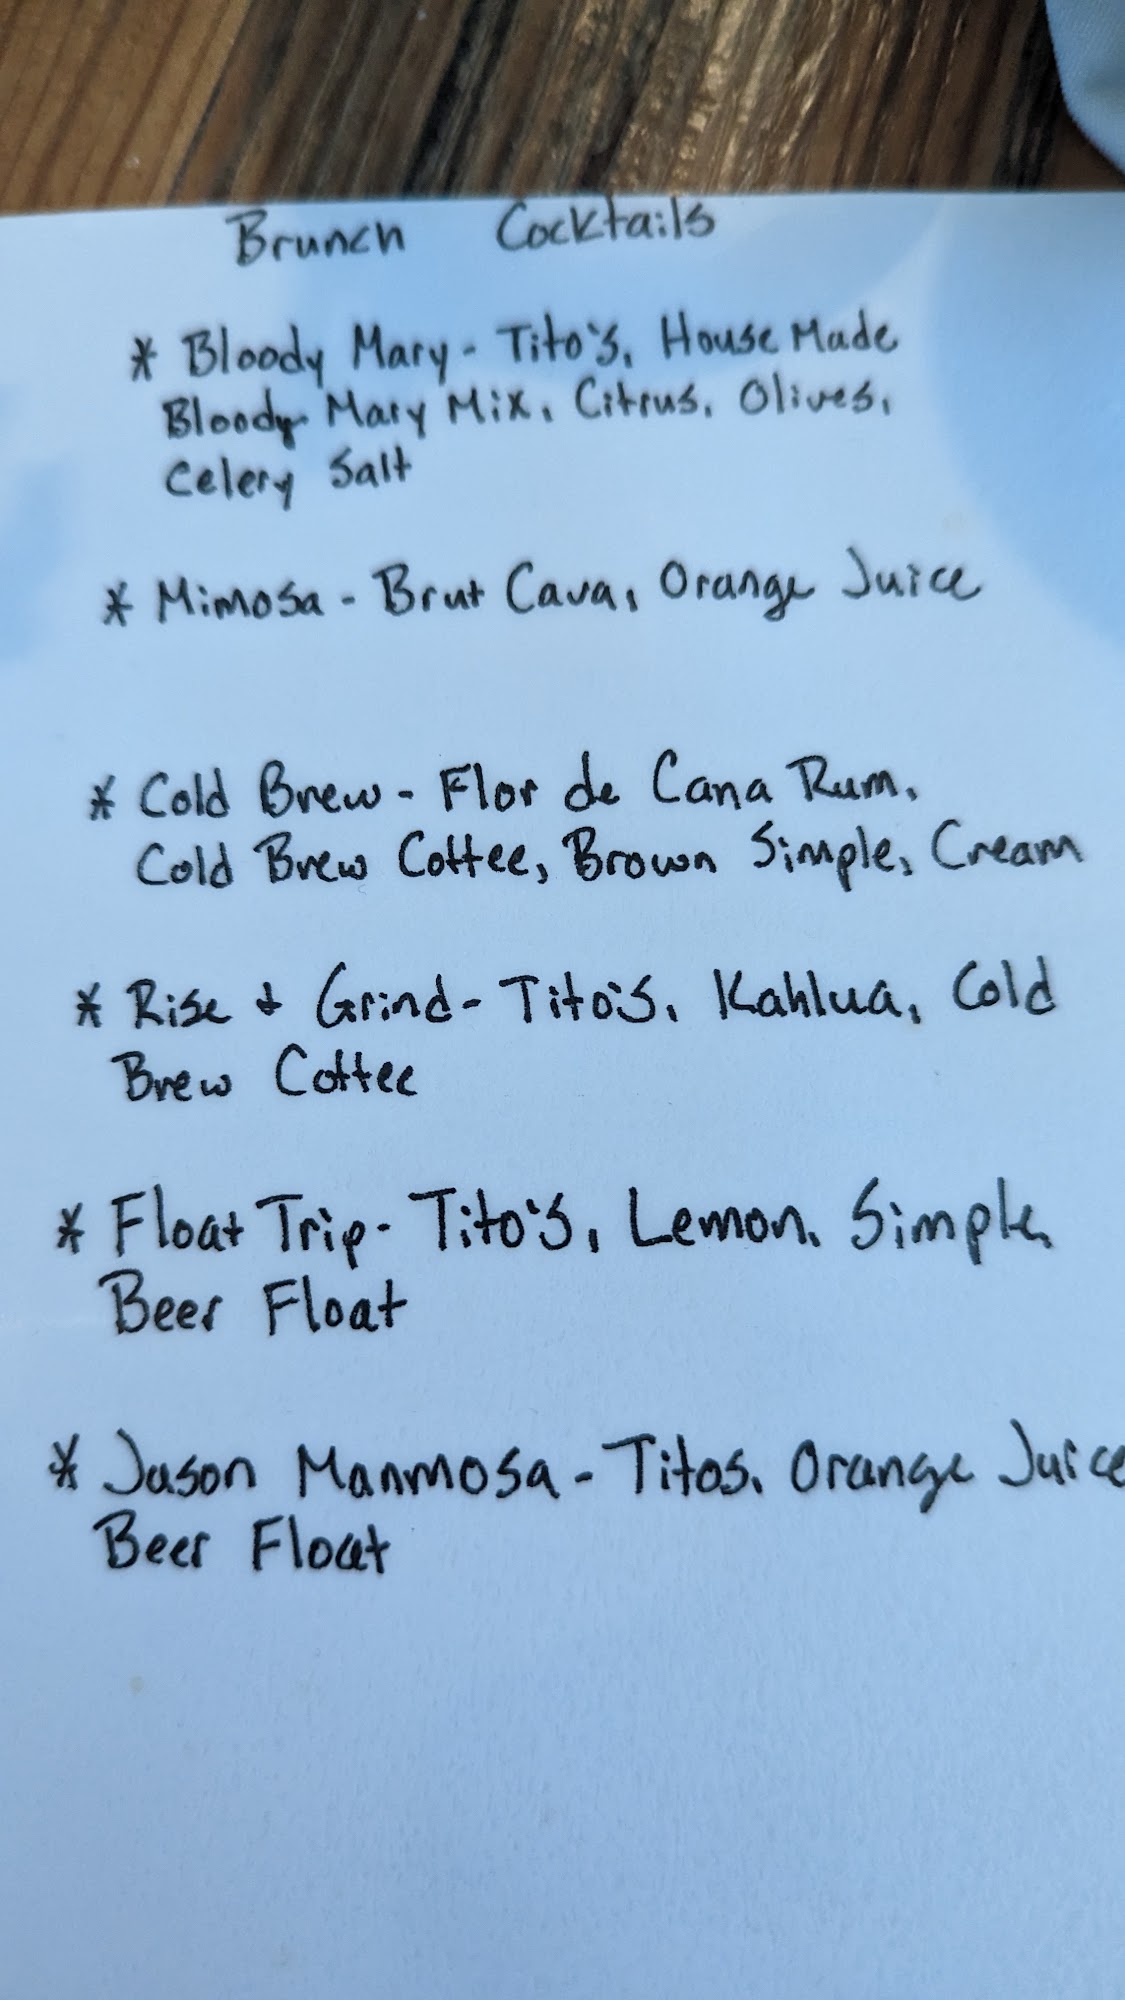 Brunch Cocktails
* Bloody Mary - Tito's, House Made
Bloody Mary Mix, Citrus, Olives,
Celery Salt
* Mimosa - Brut Cava, Orange Juice
* Cold Brew - Flor de Cana Rum,
Cold Brew Coffee, Brown Simple, Cream
* Rise & Grind - Tito's, Kahlua, Cold
Brew Coffee
* Float Trip - Tito's, Lemon, Simple,
Beer Float
* Jason Manmosa - Titos, Orange Juice
Beer Float